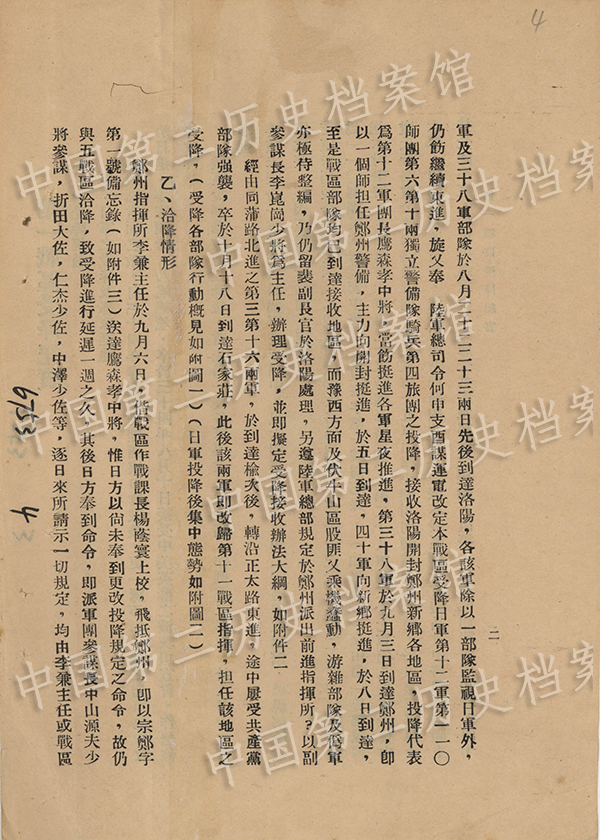 4
二
軍及三十八軍部隊於八月二十二二十三兩日先後到達洛陽，各該軍除以一部隊監視日軍外，
仍飭繼續東進，旋又奉　陸軍總司令何申支酉謀運電改定本戰區受降日軍第十二軍第一一〇
師團第六第十兩獨立警備隊騎兵第四旅團之投降，接收洛陽開封鄭州新鄉各地區，投降代表
為第十二軍團長鷹森孝中將，當飭挺進各軍星夜推進，第三十八軍於九月三日到達鄭州，即
以一個師担任鄭州警備，主力向開封挺進，於五日到達，四十軍向新鄉挺進，於八日到達，
至是戰區部隊均已到達接收地區，而豫西方面及伏牛山區股匪又乘機蠢動，游雜部隊及偽軍
亦極待整編，乃仍留裴副長官於洛陽處理，另遵陸軍總部規定於鄭州派出前進指揮所？以副
參謀長李崑崗少將為主任，辦理受降，並即擬定受降接收辦法大綱，如附件二
經由同蒲路北進之第三第十六兩軍，於到達榆次後，轉沿正太路東進，途中屢受共產黨
部隊强襲，卒於十月十八日到達石家莊，此後該兩軍即改歸第十一戰區指揮，担任該地區之
受降，（受降各部隊行動概見如附圖一）（日軍投降後集中態勢如附圖二）
乙、洽降情形
鄭州指揮所李兼主任於九月六日，偕戰區作戰課長楊蔭寰上校，飛抵鄭州，即以宗鄭字
第一號備忘錄（如附件三）送達鷹森孝中將，惟日方以尙未奉到更改投降規定之命令，故仍
與五戰區洽降，致受降進行延遲一週之久，其後日方奉到命令，即派軍團參謀長中山源夫少
將參謀，折田大佐，仁杰少佐，中澤少佐等，逐日來所請示一切規定，均由李兼主任或戰區
中国第二历史档案馆
中国第二历史档案馆
中国第二历史档案馆
中国第二历史档案馆
中国第二历史档案馆
中国第二历史档案馆
4